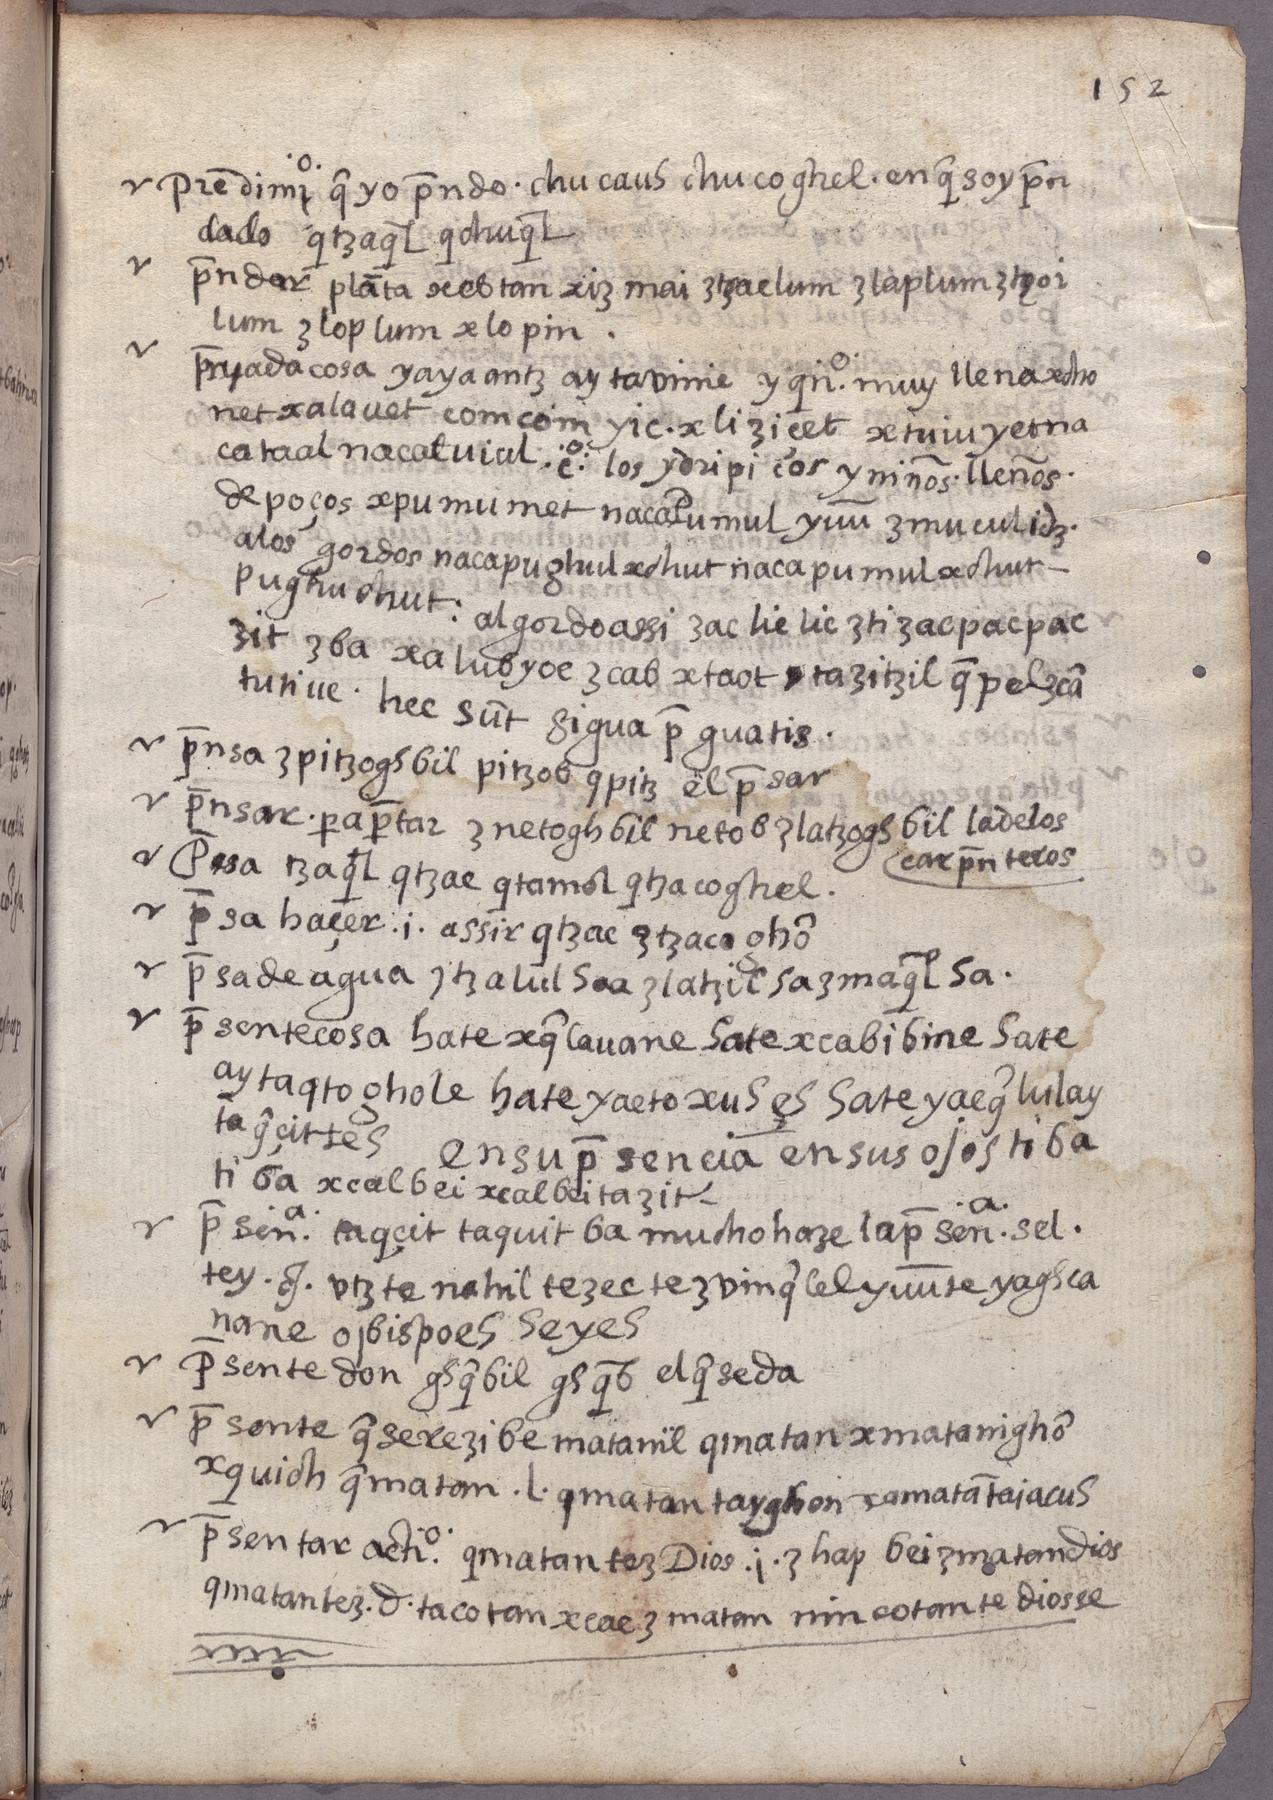 152
Prēdimiº q̃ yo p̄ndo. chucauh chucoghel. enq̃ soy p̄n
dado qtzaq̃l qchuq̃l
p̄ndar plāta xcbtan xiz mai ztzaelum zlaplum ztzoi
lum zloplum xlopin.
p̄nyada cosa yayaantz aytavinie yq̃nº. muy llena xcho
net xalauet comcoim yic. xlizicet xtuiuyetna
cataal nacaluial. ēº: los ydripicos y niños. lleños.
de poços xpumumet nacapumul yuū zmuculidz.
alos gordos nacapughul xchut nacapumul xchut
pughuchut: algordo assi zac lic lic zti zacpacpac
zit zba xalubyoc zcab xtaot tazitzil q̃ pelzcā
tutiue. hec sūt sigua p̄guatis.
p̄nsa zpitzoghbil pitzob qpitz ēl p̄sar
p̄nsar. pap̄tar znetoghbil netob zlatzoghbil lādelos
carp̄nteros
P̄esa tzaq̃l qtzae qtamol qtzacoghel.
p̄sa haçer .i. assir qtzac ztzacoghō
p̄sa de agua ztzalul haa zlatzil ha zmaq̃l ha.
p̄sente cosa hate xq̃lauane hate xcabibine hate
aytaqtoghole hate yaetoxuh eh hate yaeq̃lulay
ta q̃cit teh ensu p̄sencia ensus ojos tiba
tiba xcalbei xcalbeitazit
p̄señª. taqcit taquit ba mucho haze la p̄señª. sel.
tey. q̃. vtz te nahil tezec te zvinq̃lel yuūte yaghca
nane obispoeh heyeh
P̄sente don ghq̃bil ghq̃b elq̃ seda
p̄sente q̃ serezibe matanil qmatan xmatanighō
xquich q̃matan .l. qmatan tayghon xamatātaiacuh
p̄sentar actiº. qmatan tez Dios .i. z hap bei zmatandios
qmatantez. d. tacotan xcaez matan nin cotan te diosse